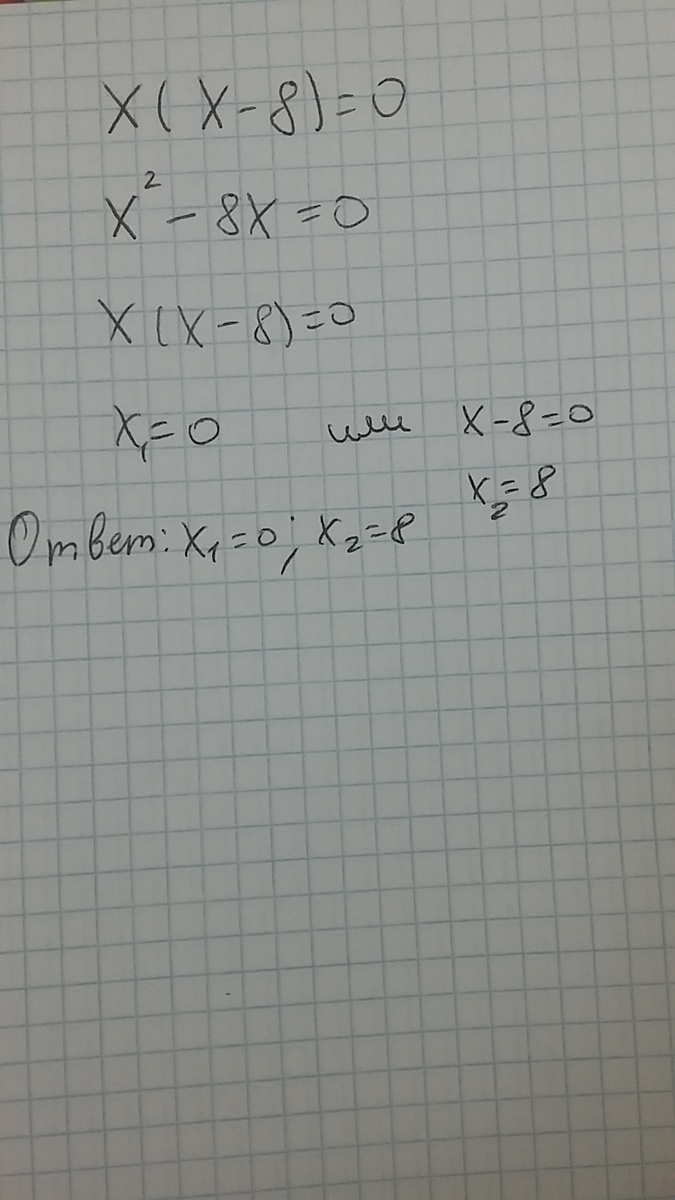 x(x-8)=0
x²-8x=0
x(x-8)=0
x₁=0 или x-8=0
x₂=8
Ответ: x₁=0; x₂=8